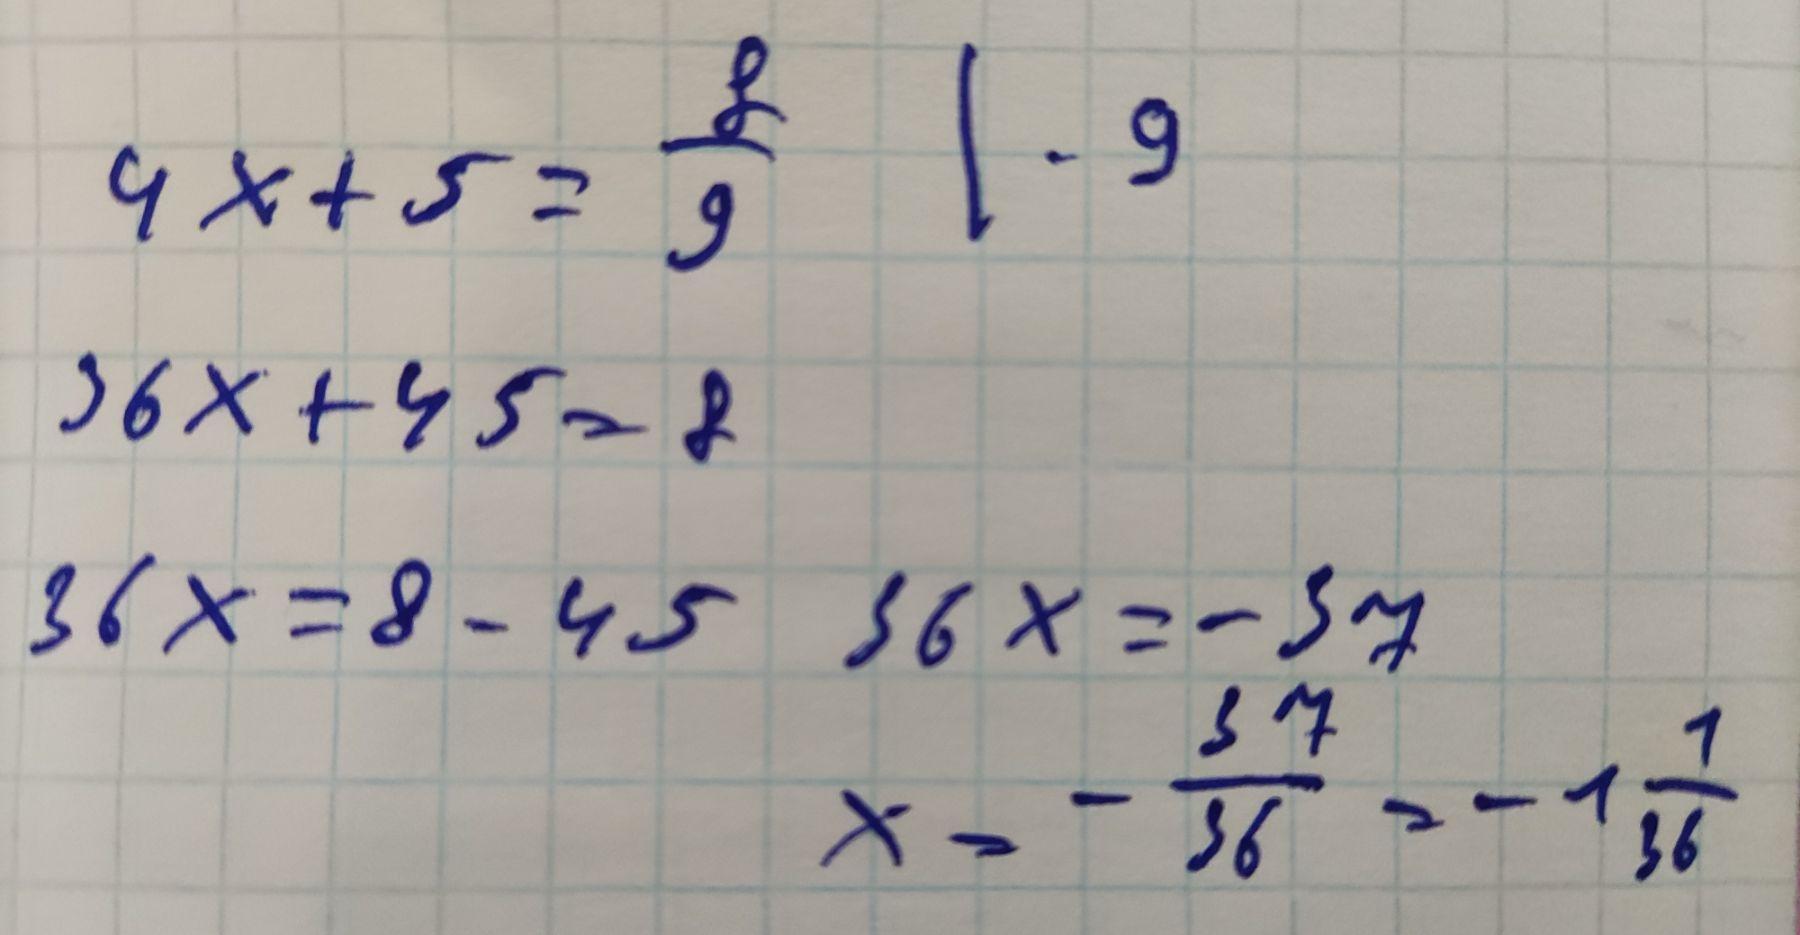 4x + 5 = 8/9 | · 9
36x + 45 = 8
36x = 8 - 45 36x = -37
x = -37/36 = -1 1/36